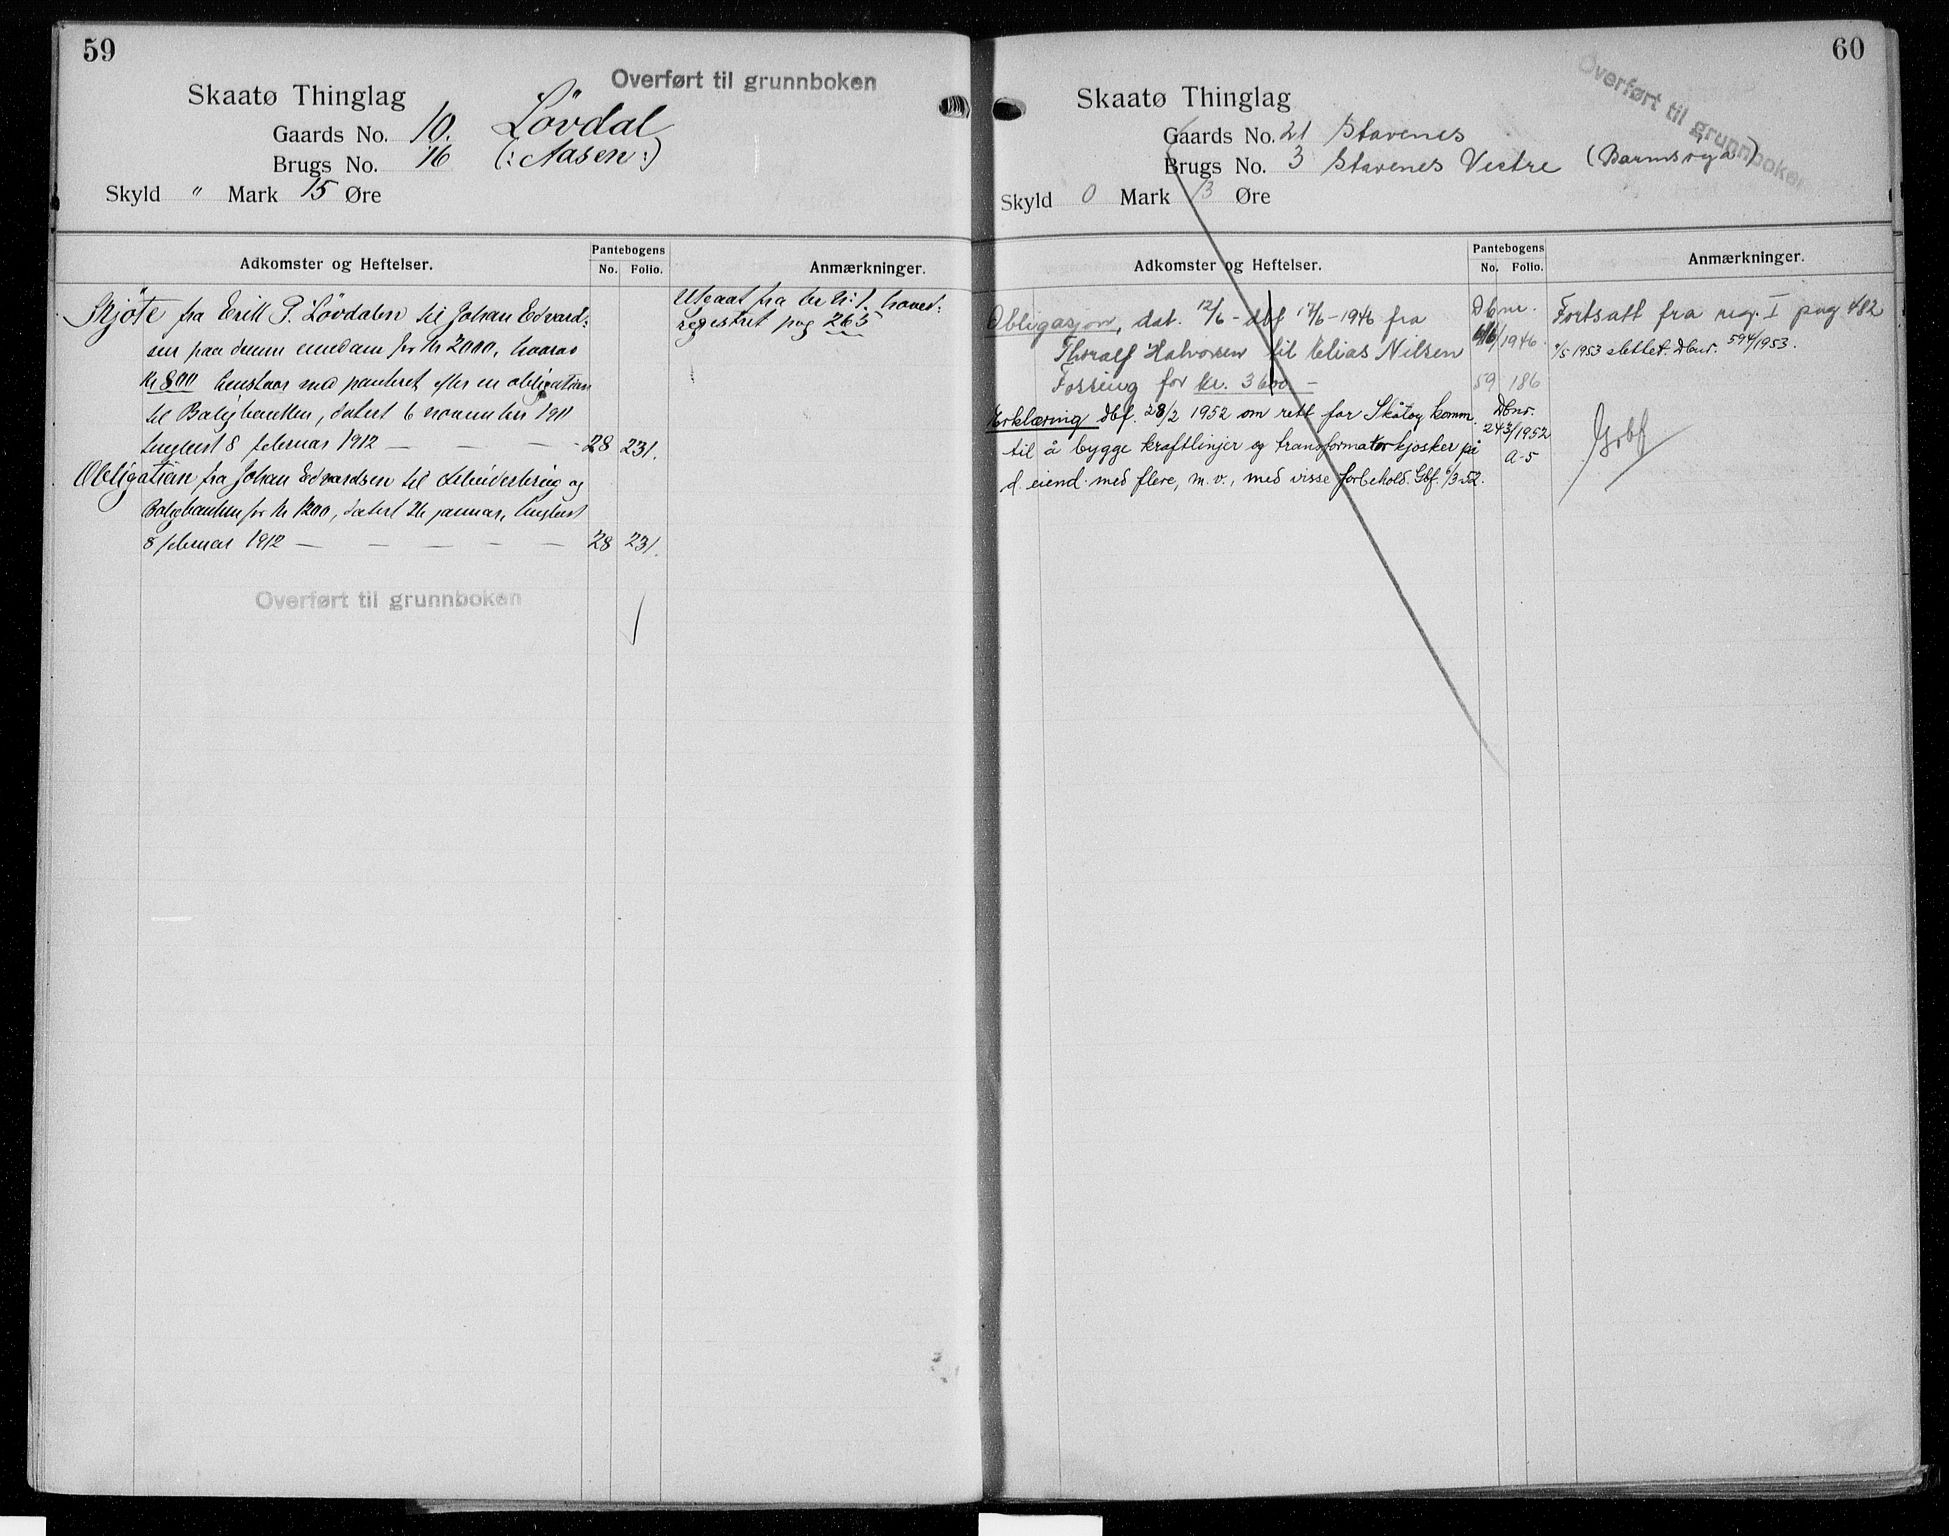 59
Overført til grunnboken
Skaatø Thinglag
Gaards No. 10. Lövdal
Brugs No. 16 (: Aasen :)
Skyld " Mark 15 Øre
Adkomster og Heftelser.
Pantebogens
No. Folio.
Anmærkninger.
Skjöte fra Erik P. Lövdalen til Johan Edvard-
sen paa denne eiendom for Kr 2000, hvorav
Kr 800 henstaar med panteret efter en obligation
til Boligbanken, datert 6 november 1911
tinglest 8 februar 1912 — — — 28 231.
Obligation fra Johan Edvardsen til Arbeiderbrug og
Boligbanken for Kr 1200, datert 26 januar, tinglest
8 februar 1912 — — — — — 28 231.
Utgaat fra br. n: 1. hoved-
registret pag 265
Overført til grunnboken
60
Overført til grunnboken
Skaatø Thinglag
Gaards No. 21 Stavenes
Brugs No. 3 Stavenes Vestre (Barmsøya)
Skyld 0 Mark 13 Øre
Adkomster og Heftelser.
Pantebogens
No. Folio.
Anmærkninger.
Obligasjon, dat. 12/6 - dbf 17/6 - 1946 fra
Thoralf Halvorsen til Elias Nilsen
Fossing for kr. 3600 —
Dbnr.
/1946.
59 186
Fortsatt fra reg. I pag 482
/5 1953 slettet. Dbnr. 594/1953.
Erklæring dbf. 28/2 1952 om rett for Skåtøy komm.
til å bygge kraftlinjer og transformatorkjosker på
d. eiend. med flere, m. v., med visse forbehold. Gbf. 6/3-52.
Dbnr.
243/1952
A-5
Gbf